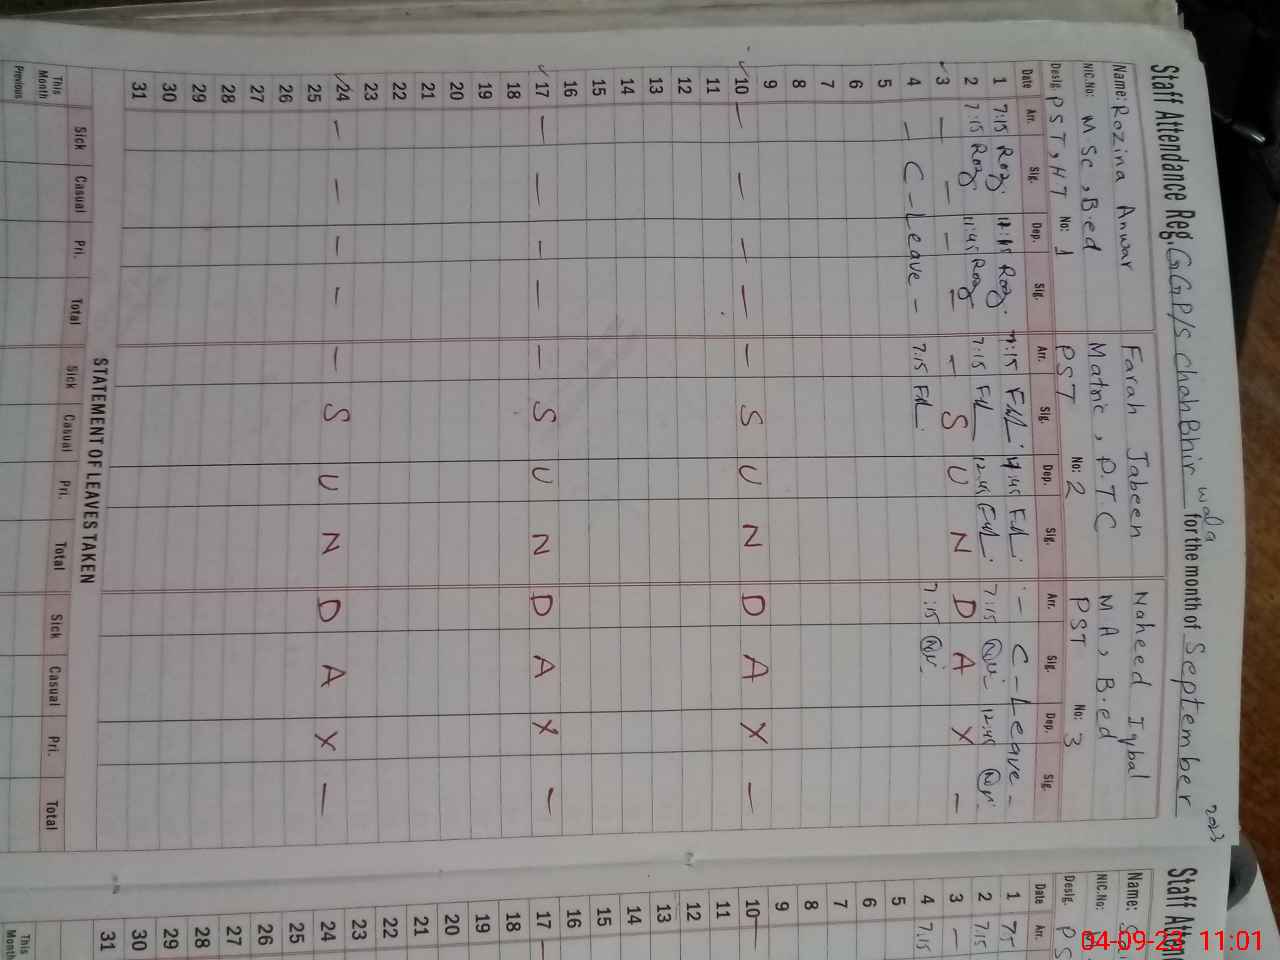 Staff Attendance Reg. GGP/S chah Bhir wala for the month of September 2023
Name: Rozina Anwar Farah Jabeen Naheed Iqbal
NIC.No: M Sc, B.ed Matric, P.T.C M A, B.ed
Desig. PST, HT No: 1 PST No: 2 PST No: 3
Date Arr. Sig. Dep. Sig. Arr. Sig. Dep. Sig. Arr. Sig. Dep. Sig.
1 7:15 Roz. Roz. 7:15 - C-Leave -
2 7:15 Roz 11:45 Roz 7:15 12:45 7:15 12:45
3 - - - - - S U N D A Y -
4 - C-Leave - 7:15 7:15
5
6
7
8
9
10 - - - - - S U N D A Y -
11
12
13
14
15
16
17 - - - - - S U N D A Y -
18
19
20
21
22
23
24 - - - - - S U N D A Y -
25
26
27
28
29
30
31
STATEMENT OF LEAVES TAKEN
Sick Casual Pri. Total Sick Casual Pri. Total Sick Casual Pri. Total
This Month
Previous
Staff Atten
Name:
NIC.No:
Desig. PS
Date Arr.
1 75
2 7:15
3 -
4 7:15
5
6
7
8
9
10 -
11
12
13
14
15
16
17 -
18
19
20
21
22
23
24
25
26
27
28
29
30
31
This Month
04-09-23 11:01